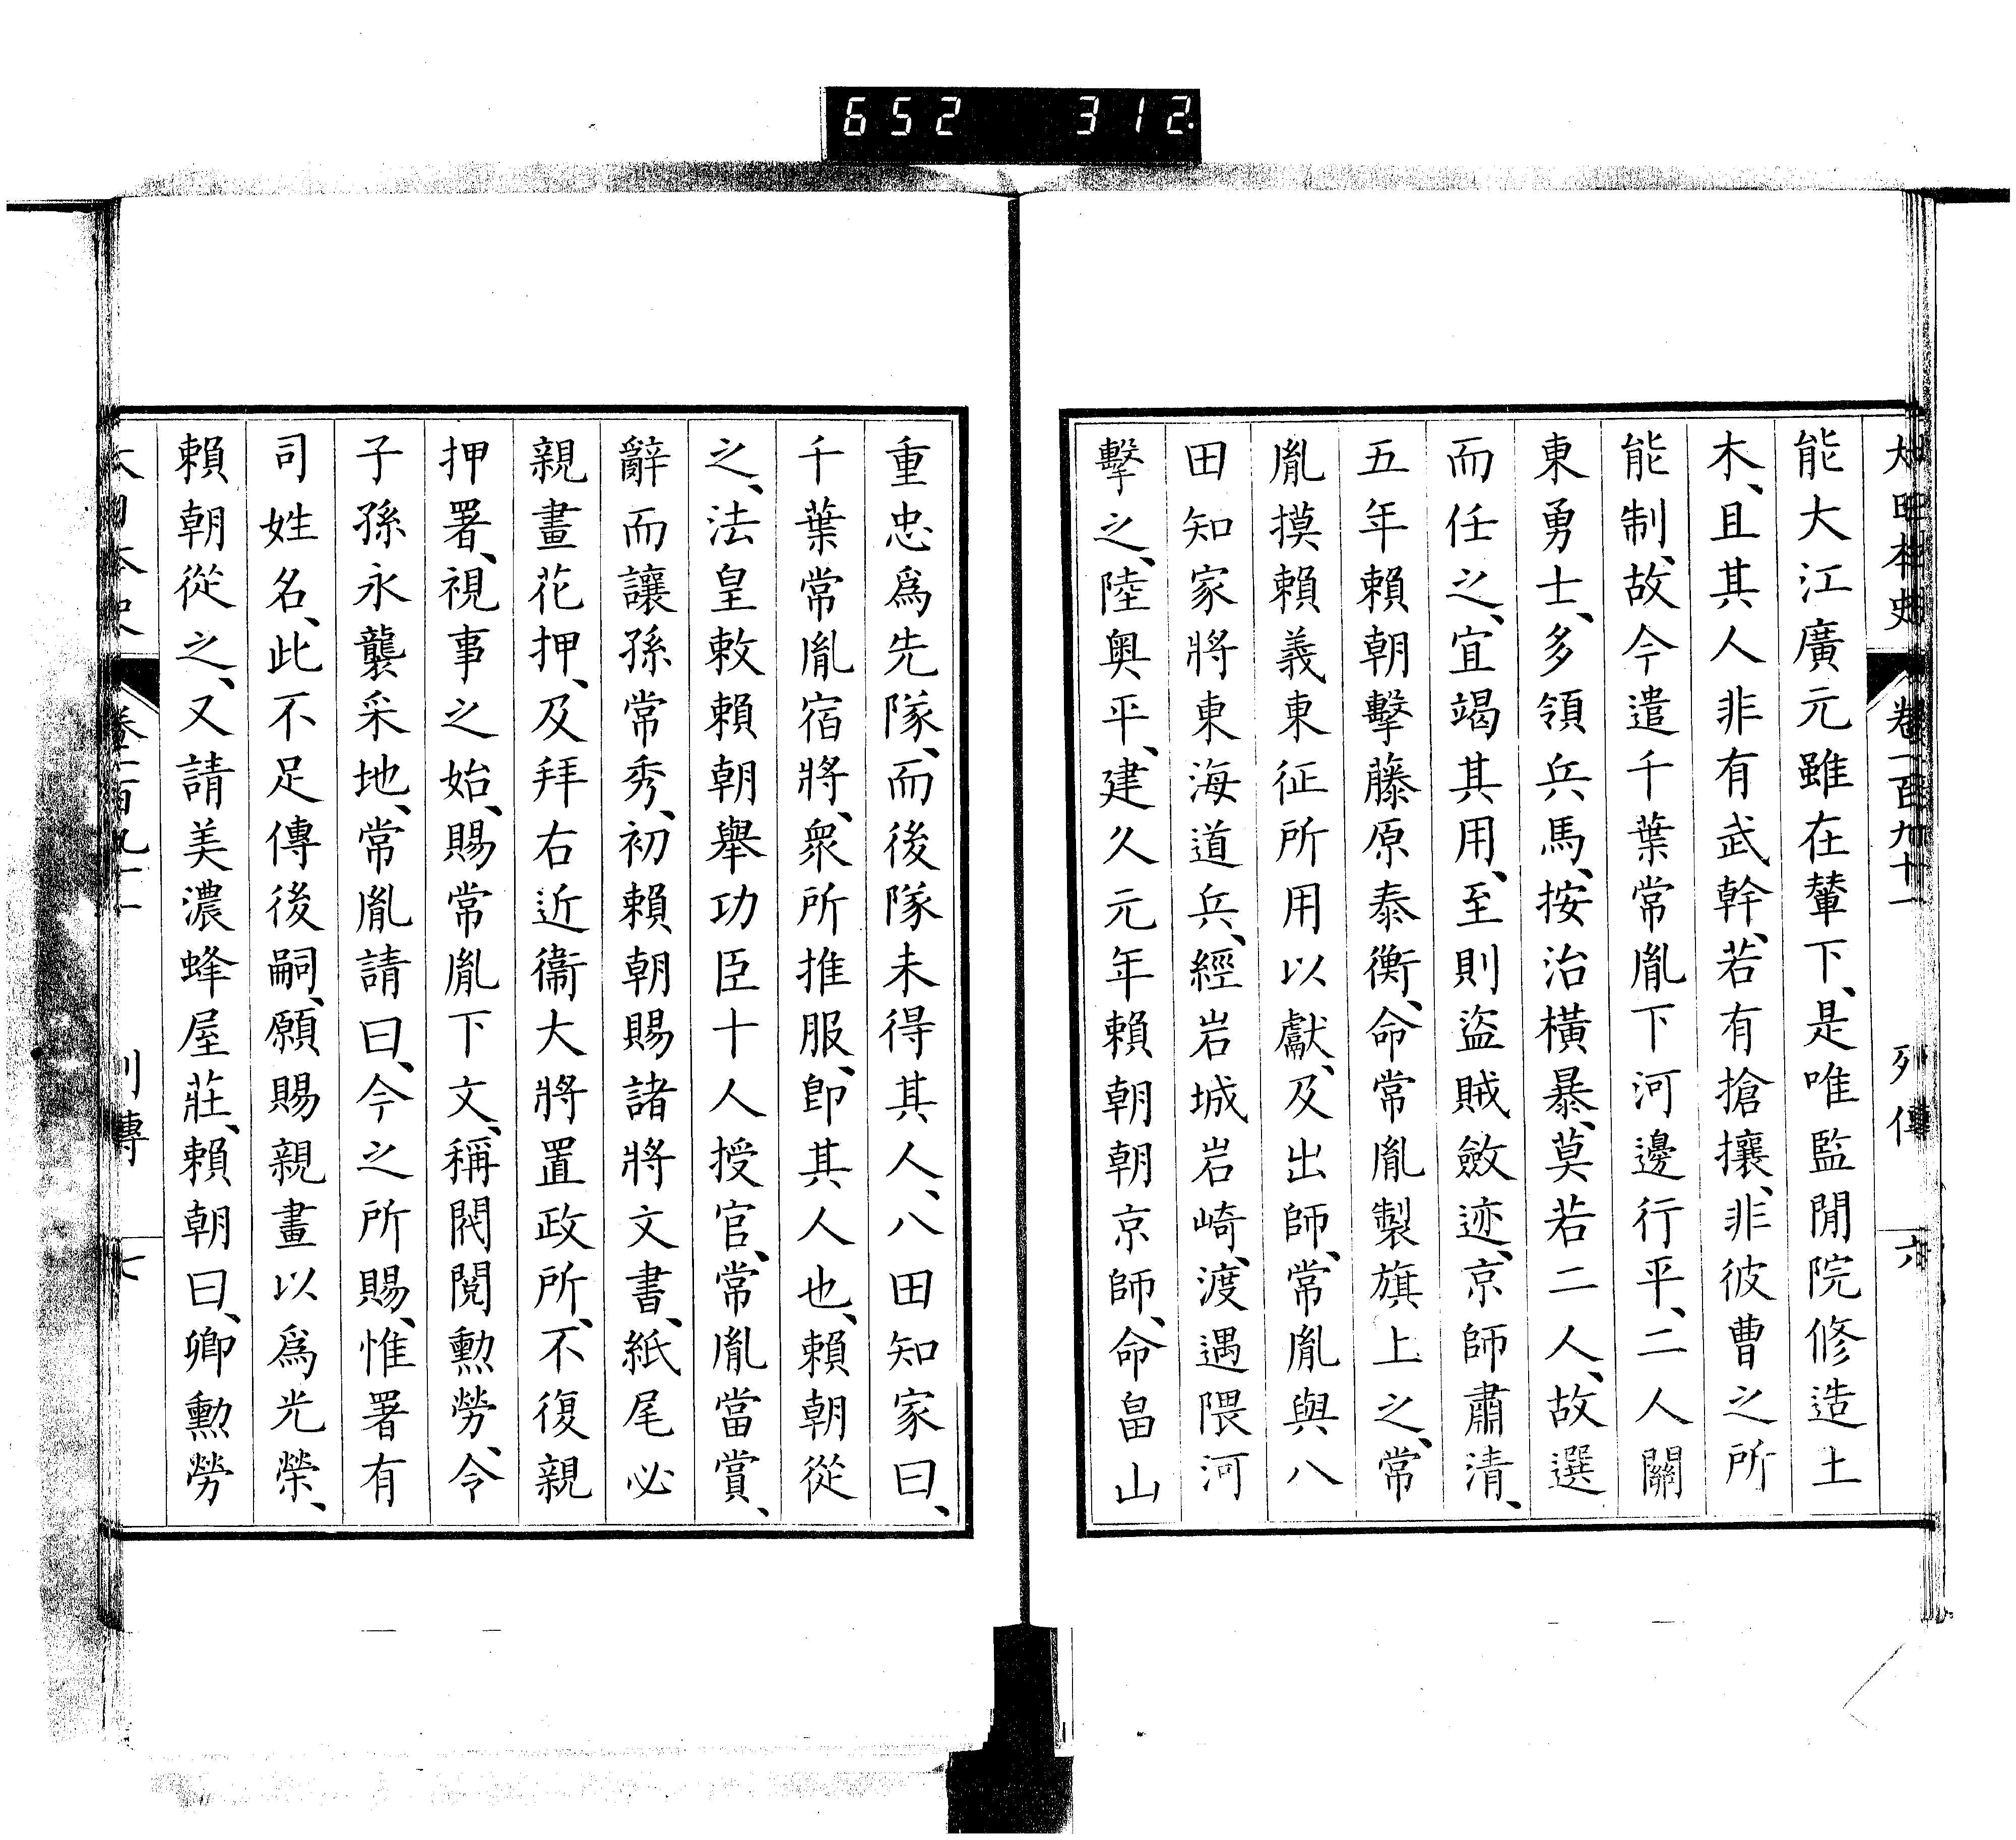 652 312
大日本史 卷一百九十一 列傳 六
能大江廣元雖在輦下、是唯監閒院修造土
木、且其人非有武幹、若有搶攘、非彼曹之所
能制、故今遣千葉常胤下河邊行平、二人關
東勇士、多領兵馬、按治橫暴、莫若二人、故選
而任之、宜竭其用、至則盜賊斂迹、京師肅清、
五年賴朝擊藤原泰衡、命常胤製旗上之、常
胤摸賴義東征所用以獻、及出師、常胤與八
田知家將東海道兵、經岩城岩崎、渡遇隈河
擊之、陸奧平、建久元年賴朝朝京師、命畠山
重忠爲先隊、而後隊未得其人、八田知家曰、
千葉常胤宿將、衆所推服、卽其人也、賴朝從
之、法皇敕賴朝舉功臣十人授官、常胤當賞、
辭而讓孫常秀、初賴朝賜諸將文書、紙尾必
親畫花押、及拜右近衞大將置政所、不復親
押署、視事之始、賜常胤下文、稱閥閱勳勞、令
子孫永襲采地、常胤請曰、今之所賜、惟署有
司姓名、此不足傳後嗣、願賜親畫以爲光榮、
賴朝從之、又請美濃蜂屋莊、賴朝曰、卿勳勞
大日本史 卷一百九十一 列傳 七